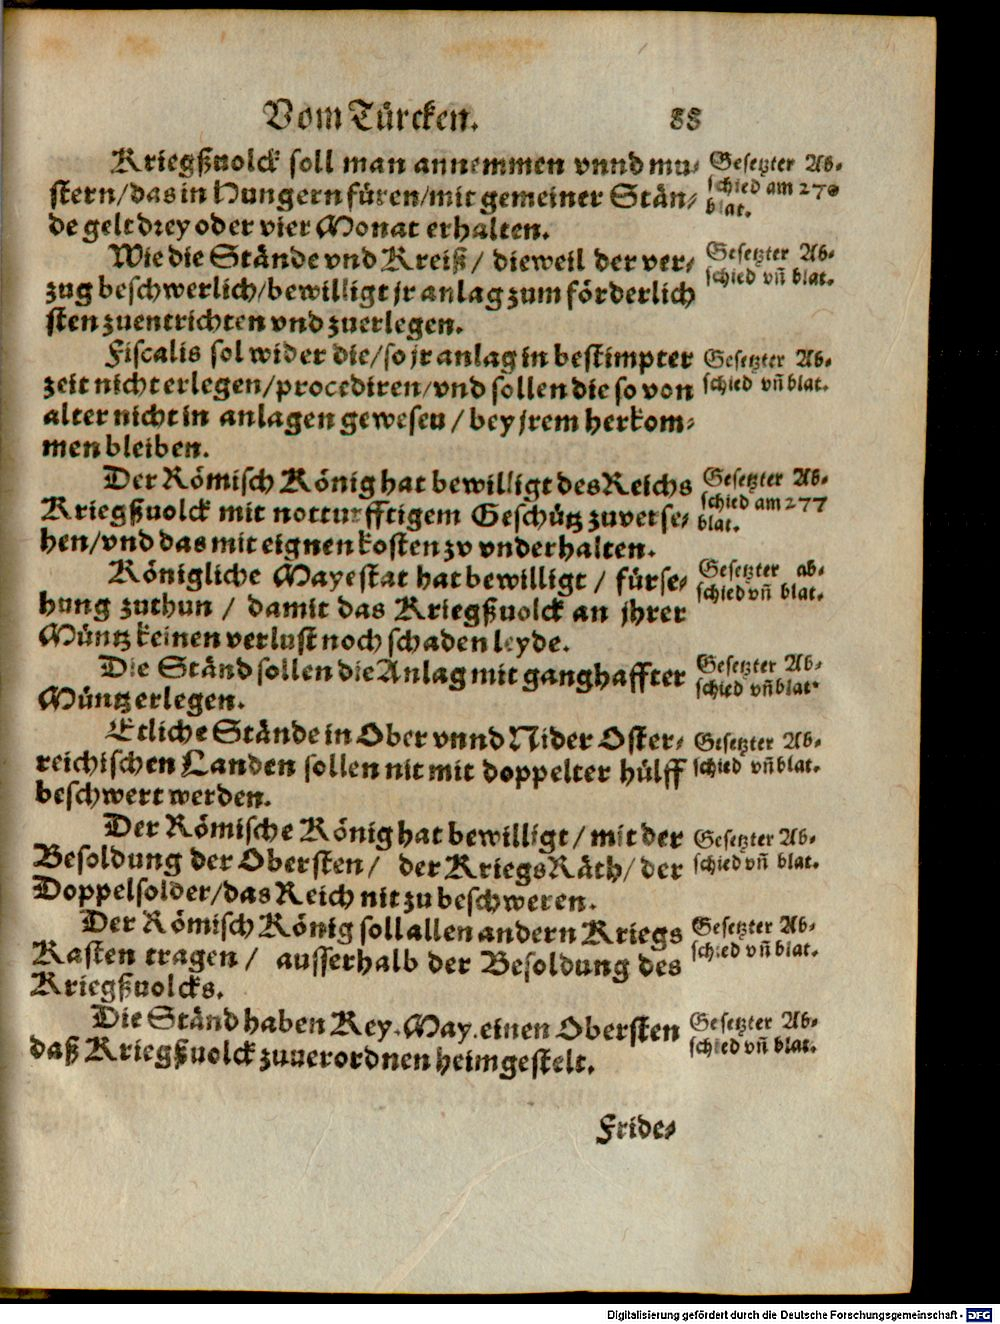 Vom Türcken. 88
Kriegßuolck soll man annemmen vnnd mu-
stern/das in Hungern füren/mit gemeiner Stän-
de gelt drey oder vier Monat erhalten.
Gesetzter Ab-
schied am 270
blat.
Wie die Stände vnd Kreiß / dieweil der ver-
zug beschwerlich/bewilligt jr anlag zum förderlich
sten zuentrichten vnd zuerlegen.
Gesetzter Ab-
schied vñ blat.
Fiscalis sol wider die/so jr anlag in bestimpter
zeit nicht erlegen/procediren/vnd sollen die so von
alter nicht in anlagen gewesen / bey jrem herkom-
men bleiben.
Gesetzter Ab-
schied vñ blat.
Der Römisch König hat bewilligt des Reichs
Kriegßuolck mit notturfftigem Geschütz zuverse-
hen/vnd das mit eignen kosten zv vnderhalten.
Gesetzter Ab-
schied am 277
blat.
Königliche Mayestat hat bewilligt / fürse-
hung zuthun / damit das Kriegßuolck an jhrer
Müntz keinen verlust noch schaden leyde.
Gesetzter ab-
schied vñ blat.
Die Ständ sollen die Anlag mit ganghaffter
Müntz erlegen.
Gesetzter Ab-
schied vñ blat.
Etliche Stände in Ober vnnd Nider Oster-
reichischen Landen sollen nit mit doppelter hülff
beschwert werden.
Gesetzter Ab-
schied vñ blat.
Der Römische König hat bewilligt / mit der
Besoldung der Obersten / der KriegsRäth / der
Doppelsolder/das Reich nit zu beschweren.
Gesetzter Ab-
schied vñ blat.
Der Römisch König soll allen andern Kriegs
Kasten tragen / ausserhalb der Besoldung des
Kriegßuolcks.
Gesetzter Ab-
schied vñ blat.
Die Ständ haben Key. May. einen Obersten
daß Kriegßuolck zuuerordnen heimgestelt.
Gesetzter Ab-
schied vñ blat.
Fride-
Digitalisierung gefördert durch die Deutsche Forschungsgemeinschaft - DFG